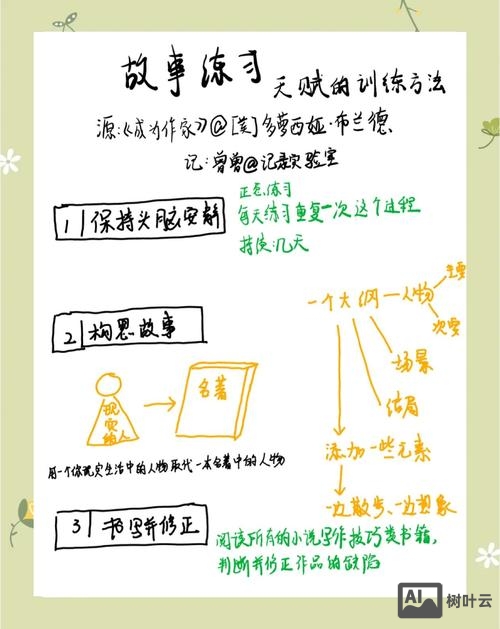 故事练习 天赋的训练方法
源:《成为作家》@[美]多萝西娅·布兰德
记:曾曾@记录实验室
1 保持头脑安静
正念练习
每天练习重复一次这个过程
持续:几天
一个大纲—人物
主要
次要
场景
结局
添加一些元素
一边散步、一边想象
2 构思故事
现实的人
名著
用一个你现实生活中的人物取代一本名著中的人物
3 书写并修正
阅读所有的小说写作技巧类书籍,
判断并修正作品的缺陷
AI 树叶云